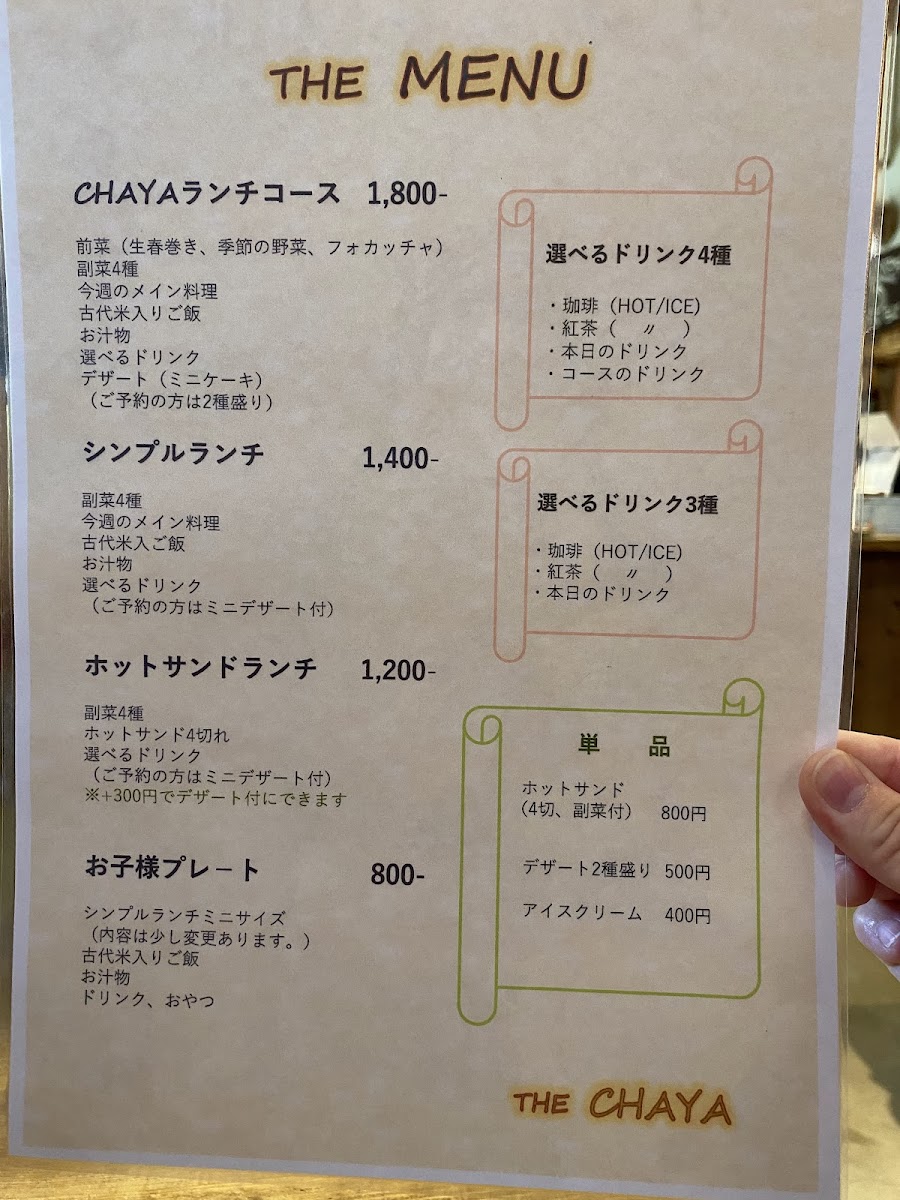 THE MENU
CHAYAランチコース 1,800-
前菜（生春巻き、季節の野菜、フォカッチャ）
副菜4種
今週のメイン料理
古代米入りご飯
お汁物
選べるドリンク
デザート（ミニケーキ）
（ご予約の方は2種盛り）
シンプルランチ 1,400-
副菜4種
今週のメイン料理
古代米入ご飯
お汁物
選べるドリンク
（ご予約の方はミニデザート付）
ホットサンドランチ 1,200-
副菜4種
ホットサンド4切れ
選べるドリンク
（ご予約の方はミニデザート付）
※+300円でデザート付にできます
お子様プレート 800-
シンプルランチミニサイズ
（内容は少し変更あります。）
古代米入りご飯
お汁物
ドリンク、おやつ
選べるドリンク4種
・珈琲（HOT/ICE）
・紅茶（ 〃 ）
・本日のドリンク
・コースのドリンク
選べるドリンク3種
・珈琲（HOT/ICE）
・紅茶（ 〃 ）
・本日のドリンク
単 品
ホットサンド
（4切、副菜付） 800円
デザート2種盛り 500円
アイスクリーム 400円
THE CHAYA